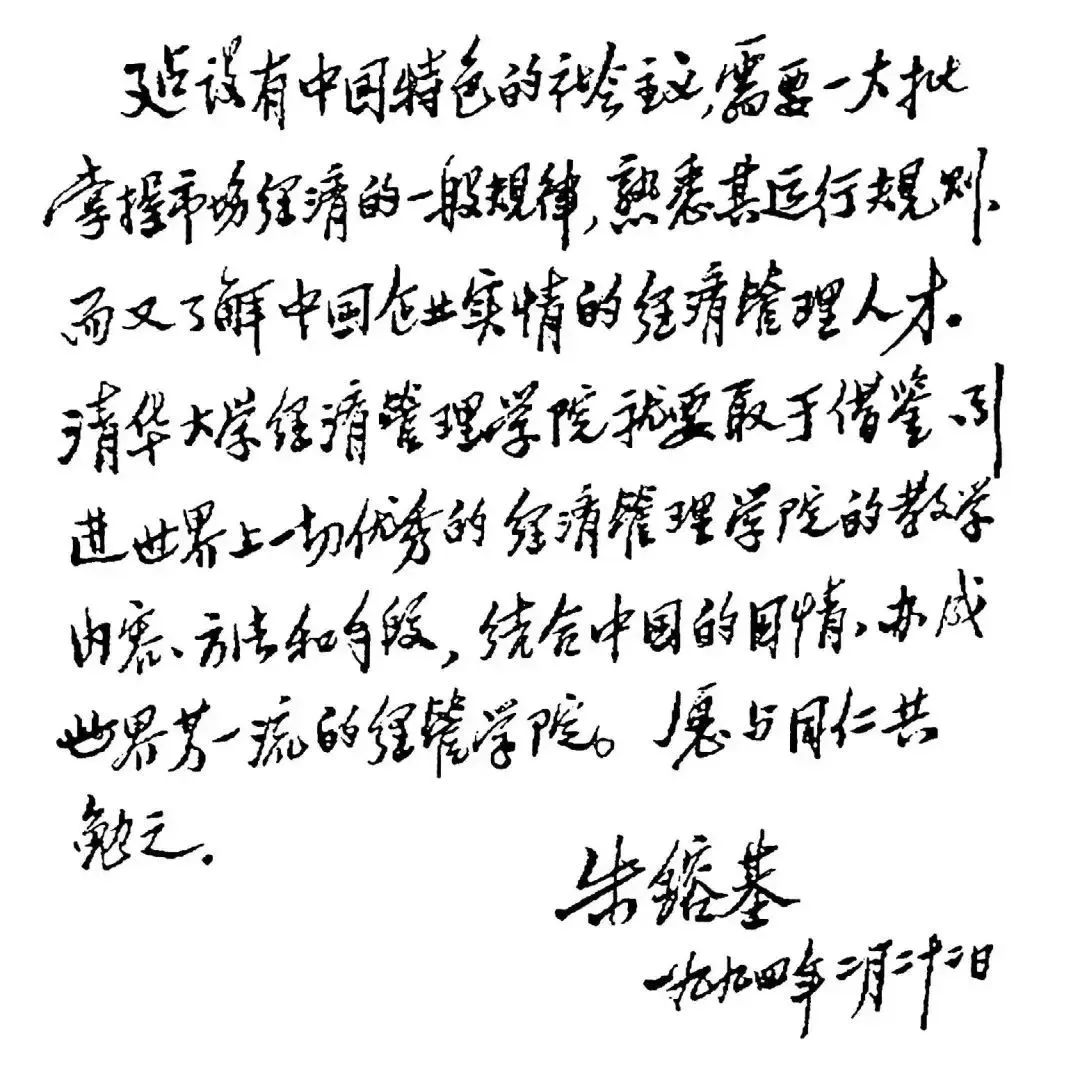 建设有中国特色的社会主义,需要一大批
掌握市场经济的一般规律,熟悉其运行规则、
而又了解中国企业实情的经济管理人才。
清华大学经济管理学院就要敢于借鉴、引
进世界上一切优秀的经济管理学院的教学
内容、方法和手段,结合中国的国情、办成
世界第一流的经管学院。愿与同仁共
勉之。
朱镕基
一九九四年二月二十二日